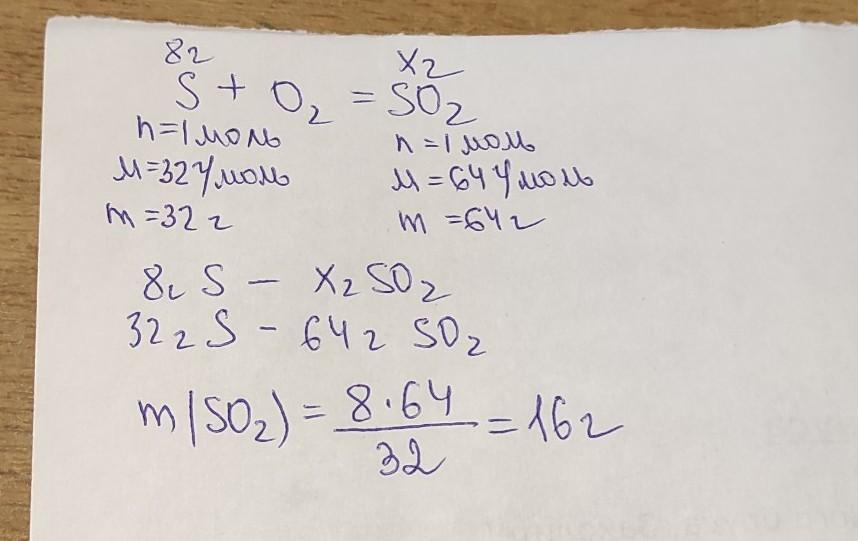 8г хг
S + O₂ = SO₂
n=1моль n=1моль
M=32г/моль M=64г/моль
m=32г m=64г
8г S – хг SO₂
32г S – 64г SO₂
m(SO₂) = 8·64/32 = 16г